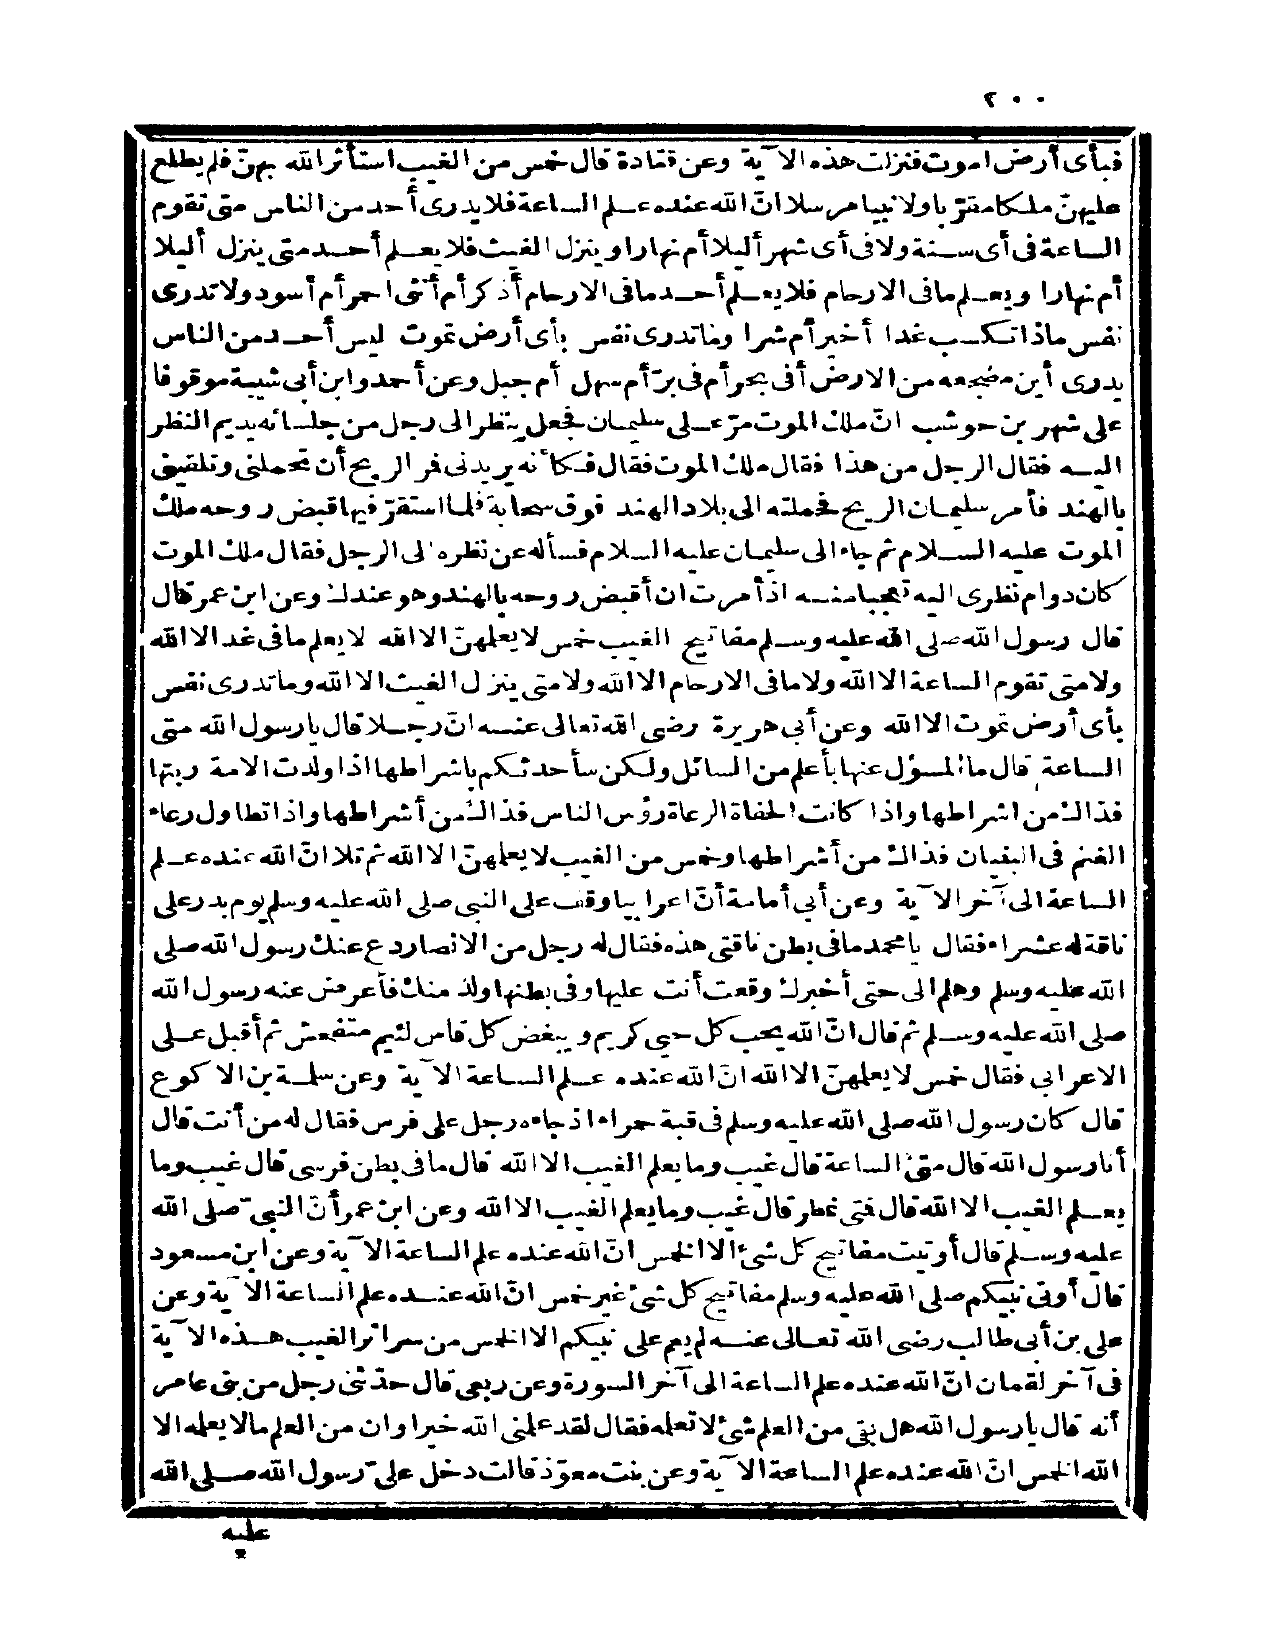 ٢٠٠
فبأى أرض أموت فنزلت هذه الآية وعن قتادة قال خمس من الغيب استأثر الله بهنّ فلم يطلع
عليهنّ ملكا مقرّبا ولا نبيا مرسلا انّ الله عنده علم الساعة فلا يدرى أحد من الناس متى تقوم
الساعة فى أى سنة ولا فى أى شهر أليلا أم نهارا وينزل الغيث فلا يعلم أحد متى ينزل أليلا
أم نهارا ويعلم ما فى الارحام فلا يعلم أحد ما فى الارحام أذكر أم أنثى احمر أم أسود ولا تدرى
نفس ماذا تكسب غدا أخير أم شرا وما تدرى نفس بأى أرض تموت ليس أحد من الناس
يدرى أين مضجعه من الارض أفى بحر أم فى برّ أم سهل أم جبل وعن أحمد وابن أبى شيبة موقوفا
على شهر بن حوشب انّ ملك الموت مرّ على سليمان فجعل ينظر الى رجل من جلسائه يديم النظر
اليه فقال الرجل من هذا فقال ملك الموت فقال فكأنه يريدنى فر الريح أن تحملنى وتلقينى
بالهند فأمر سليمان الريح فحملته الى بلاد الهند فوق سحابة فلما استقرّ فيها قبض روحه ملك
الموت عليه السلام ثم جاء الى سليمان عليه السلام فسأله عن نظره الى الرجل فقال ملك الموت
كان دوام نظرى اليه تعجبا منه اذ أمرت ان أقبض روحه بالهند وهو عندك وعن ابن عمر قال
قال رسول الله صلى الله عليه وسلم مفاتيح الغيب خمس لا يعلمهنّ الا الله لا يعلم ما فى غد الا الله
ولا متى تقوم الساعة الا الله ولا ما فى الارحام الا الله ولا متى ينزل الغيث الا الله وما تدرى نفس
بأى أرض تموت الا الله وعن أبى هريرة رضى الله تعالى عنه انّ رجلا قال يا رسول الله متى
الساعة قال ما المسؤل عنها بأعلم من السائل ولكن سأحدثكم باشراطها اذا ولدت الامة ربتها
فذاك من اشراطها واذا كانت الحفاة الرعاة رؤس الناس فذاك من أشراطها واذا تطاول رعاء
الغنم فى البنيان فذاك من أشراطها وخمس من الغيب لا يعلمهنّ الا الله ثم تلا انّ الله عنده علم
الساعة الى آخر الآية وعن أبى أمامة أنّ اعرابيا وقف على النبى صلى الله عليه وسلم يوم بدر على
ناقة له عشراء فقال يا محمد ما فى بطن ناقتى هذه فقال له رجل من الانصار دع عنك رسول الله صلى
الله عليه وسلم وهلم الى حتى أخبرك وقعت أنت عليها وفى بطنها ولد منك فأعرض عنه رسول الله
صلى الله عليه وسلم ثم قال انّ الله يحب كل حيى كريم ويبغض كل قاس لئيم متفحش ثم أقبل على
الاعرابى فقال خمس لا يعلمهنّ الا الله انّ الله عنده علم الساعة الآية وعن سلمة بن الاكوع
قال كان رسول الله صلى الله عليه وسلم فى قبة حمراء اذ جاءه رجل على فرس فقال له من أنت قال
أنا رسول الله قال متى الساعة قال غيب وما يعلم الغيب الا الله قال ما فى بطن فرسى قال غيب وما
يعلم الغيب الا الله قال فتى غطر قال غيب وما يعلم الغيب الا الله وعن ابن عمر أنّ النبىّ صلى الله
عليه وسلم قال أوتيت مفاتيح كل شئ الا الخمس انّ الله عنده علم الساعة الآية وعن ابن مسعود
قال أوتى نبيكم صلى الله عليه وسلم مفاتيح كل شئ غير خمس انّ الله عنده علم الساعة الآية وعن
على بن أبى طالب رضى الله تعالى عنه لم يعم على نبيكم الا الخمس من سرائر الغيب هذه الآية
فى آخر لقمان انّ الله عنده علم الساعة الى آخر السورة وعن ربعى قال حدّثنى رجل من بنى عامر
أنه قال يا رسول الله هل بقى من العلم شئ لا تعلمه فقال لقد علمنى الله خيرا وان من العلم ما لا يعلمه الا
الله الخمس انّ الله عنده علم الساعة الآية وعن بنت معوّذ قالت دخل علىّ رسول الله صلى الله
عليه